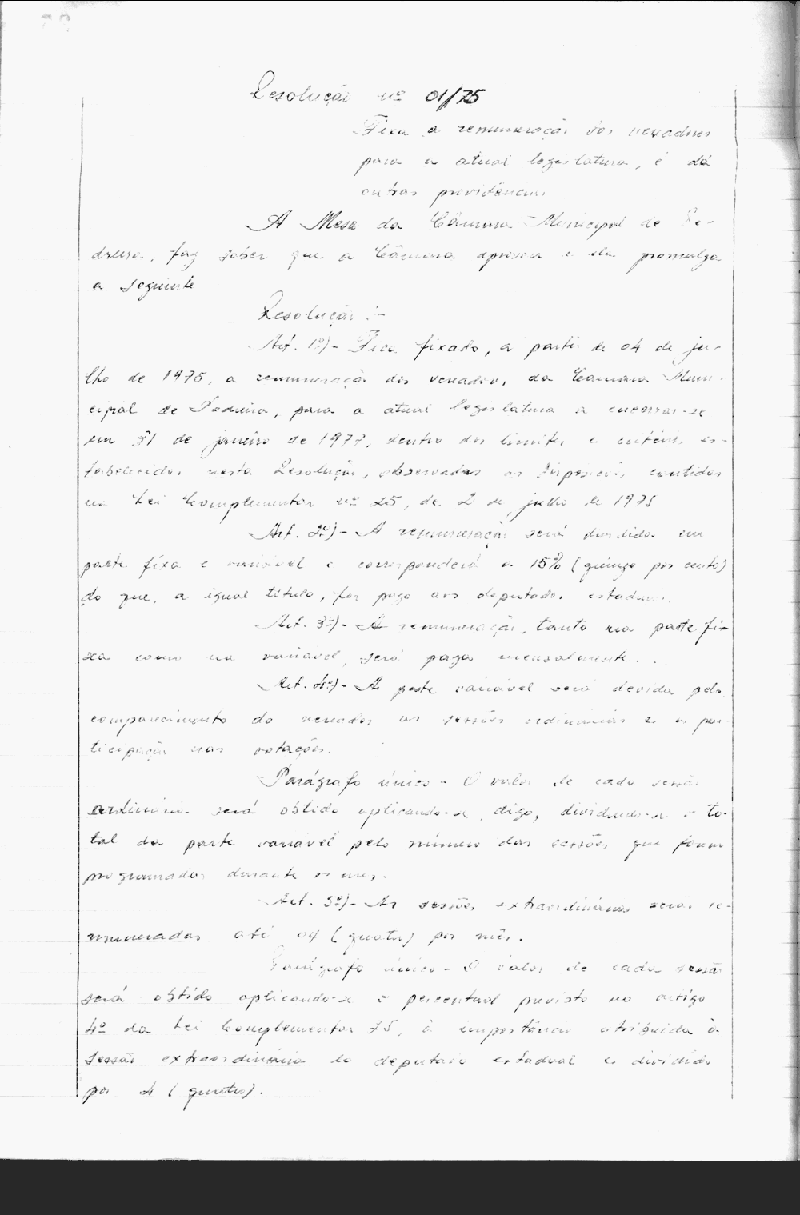 Resolução nº 01/75
Fixa a remuneração dos vereadores
para a atual legislatura, e dá
outras providências
A Mesa da Câmara Municipal de
faz saber que a Câmara aprova e ela promulga
a seguinte
Resolução :-
Art. 1º)- Fica fixado, a partir de 04 de ju-
lho de 1975, a remuneração dos vereadores, da Câmara Muni-
cipal de para a atual legislatura a encerrar-se
em 31 de janeiro de 1977, dentro dos limites e critérios es-
tabelecidos nesta Resolução, observadas as disposições contidas
na Lei Complementar nº 25, de 2 de julho de 1975
Art. 2º)- A remuneração será dividida em
parte fixa e variável e corresponderá a 15% (quinze por cento)
do que, a igual título, for pago aos deputados estaduais.
Art. 3º)- A remuneração, tanto na parte fi-
xa como na variável, será paga mensalmente.
Art. 4º)- A parte variável será devida pelo
comparecimento do vereador às sessões ordinárias e a par-
ticipação nas votações.
Parágrafo único - O valor de cada sessão
ordinária será obtido aplicando-se, digo, dividindo-se o to-
tal da parte variável pelo número das sessões que forem
programadas durante o mês.
Art. 5º)- As sessões extraordinárias serão re-
muneradas até 04 (quatro) por mês.
Parágrafo único - O valor de cada sessão
será obtido aplicando-se o percentual previsto no artigo
4º da Lei Complementar 25, à importância atribuída à
sessão extraordinária do deputado estadual e dividido
por 4 (quatro).